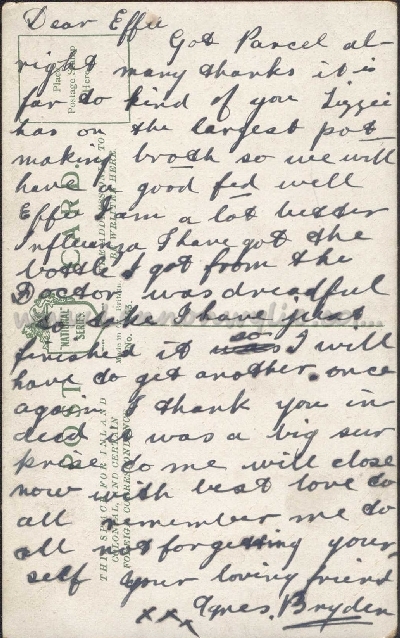 Dear Effie
Got Parcel al-
right many thanks it is
far to kind of you Lizzie
has on the largest pot
making broth so we will
have a good fed well
Effie I am a lot better
Influenza I have got the
bottle I got from the
Doctor was dreadful
to take I have just
finished it so I will
have to get another once
again I thank you in-
deed it was a big sur
prise to me will close
now with best love to
all remember me to
all not forgetting your-
self your loving friend
xxx Agnes. Bryden
POST CARD.
NATIONAL SERIES
THIS SPACE FOR INLAND
COLONIAL AND CERTAIN
FOREIGN CORRESPONDENCE
THE ADDRESS ONLY TO
BE WRITTEN HERE
Place
Postage Stamp
Here